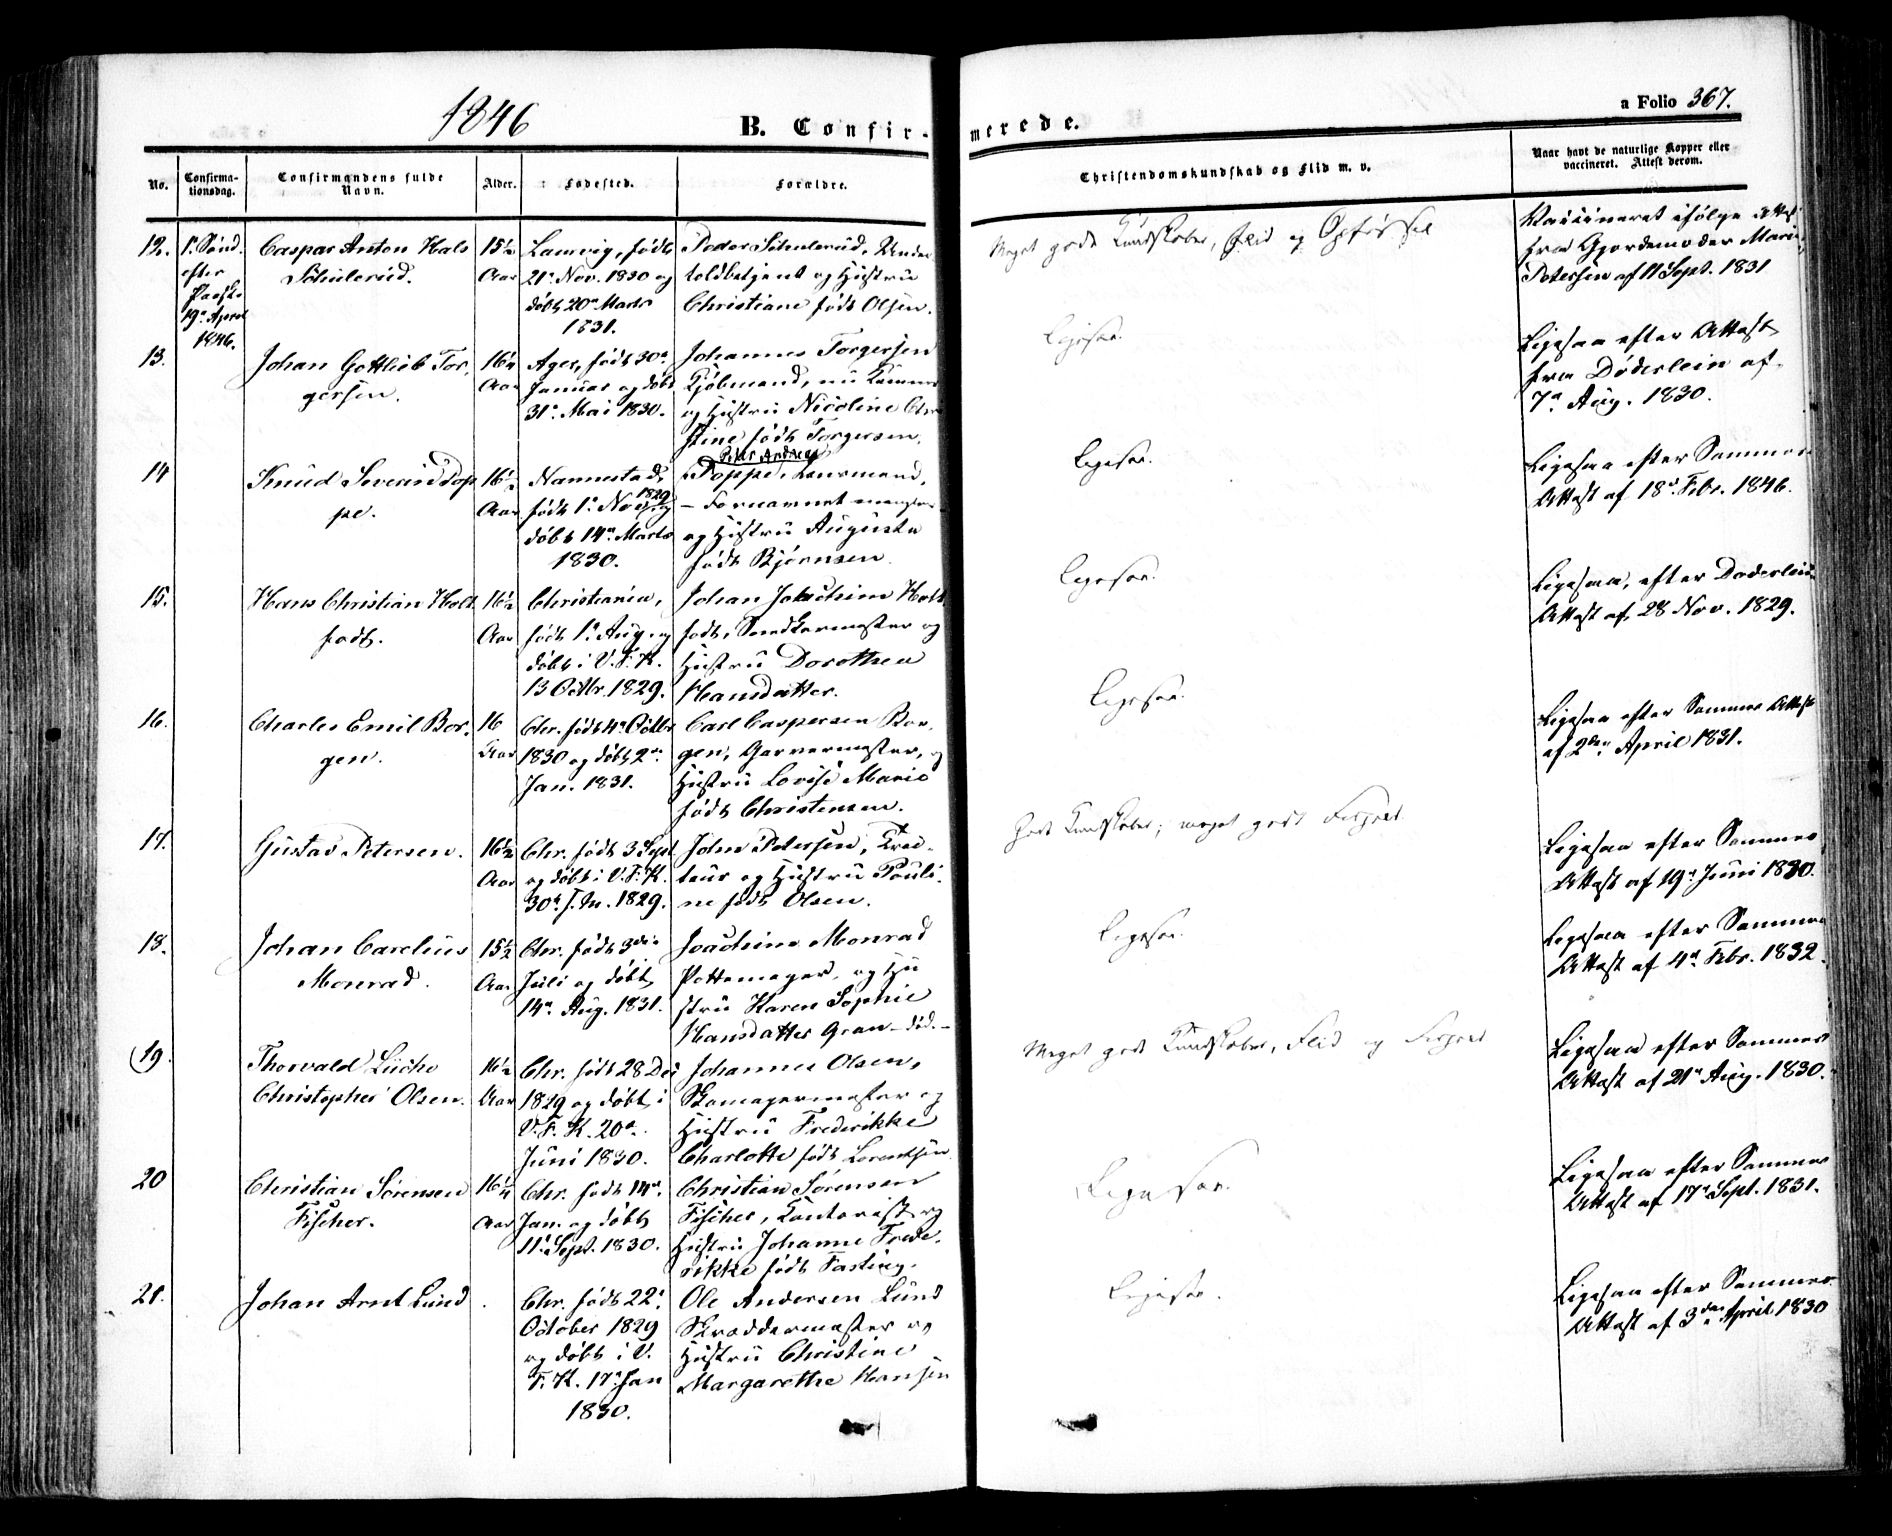 1846
B. Confir-
merede.
a Folio 367.
No.
Confirma-
tionsdag.
Confirmandens fulde
Navn.
Alder.
Fødested.
Forældre.
Christendomskundskab og Flid m. v.
Naar havt de naturlige Kopper eller
vaccineret. Attest derom.
12.
1ste Sønd.
efter
Paaske
19de April
1846.
Caspar Anton Hals
Schulerud.
15½
Aar
Laurvig, født
21de Nov. 1830 og
døbt 20de Marts
1831.
Peder Schulerud, Under
toldbetjent og Hustru
Christiane født Olsen.
Meget gode Kundskaber, Flid og Opførsel
Vaccineret ifølge Attest
fra Gjordemoder Marie
Petersen af 11 Sept. 1831
13.
Johan Gottlieb Tor-
gersen.
16¼
Aar
Ager, født 30de
Januar og døbt
31te Mai 1830.
Johannes Torgersen
Kjøbmand, nu
og Hustru Nicoline Chri
stine født Torgersen.
Ligesaa.
Ligesaa efter Attest
fra Døderlein af
7de Aug. 1830.
14
Knud Severin Pop
pe.
16½
Aar
Nannestad,
født 1te Nov. 1829 og
døbt 14de Marts
1830.
Peter Andreas
Poppe, Lensmand,
– Fornavnet mangler –
og Hustru Augusta
født Bjørnsen
Ligesaa.
Ligesaa efter Sammes
Attest af 18de Febr. 1846.
15.
Hans Christian Holt
fodt.
16½
Aar
Christiania,
født 1te Aug. og
døbt i V. F. K.
13 Octbr. 1829.
Johan Joachim Holt
fodt, Snedkermester og
Hustru Dorothea
Hansdatter.
Ligesaa.
Ligesaa, efter Døderleins
Attest af 28 Nov. 1829.
16.
Charles Emil Bor-
gen.
16
Aar
Chr. født 4de Octbr
1830 og døbt 2den
Jan. 1831.
Carl Caspersen Bor-
gen, Garvermester, og
Hustru Lovise Marie
født Christensen.
Ligesaa.
Ligesaa efter Sammes Attest
af 2den April 1831.
17.
Gustav Petersen.
16½
Aar
Chr. født 3 Sept
og døbt i V. F. K.
30te 1829.
John Petersen,
teur og Hustru Pauli-
ne født Olsen.
Gode Kundskaber; meget god Forhold
Ligesaa efter Sammes
Attest af 19de Juni 1830.
18.
Johan Carelius
Monrad.
15½
Aar
Chr. født 3die
Juli og døbt
14de Aug. 1831.
Joachim Monrad
Pottemager, og Hu
stru Karen Sophie
Hansdatter Gran – død. –
Ligesaa.
Ligesaa efter Sammes
Attest af 4de Febr. 1832.
19.
Thorvald Lüche
Christopher Olsen.
16½
Aar
Chr. født 28 Dec
1829 og døbt i
V. F. K. 20de
Juni 1830.
Johannes Olsen,
Skomagermester og
Hustru Frederikke
Charlotte født Lorentsen
Meget gode Kundskaber, Flid og Forhold
Ligesaa efter Sammes
Attest af 21de Aug. 1830.
20
Christian Sørensen
Fischer.
16¼
Aar
Chr. født 14de
Jan. og døbt
11te Sept. 1830.
Christian Sørensen
Fischer, Kontorist og
Hustru Johanne Frede-
rikke født Fasting.
Ligesaa.
Ligesaa efter Sammes
Attest af 17de Sept. 1831.
21.
Johan Arnt Lund
Chr. født 22de
October 1829
og døbt i V.
F. K. 17de Jan
1830.
Ole Andersen Lund
Skræddermester og
Hustru Christine
Margarethe Hansen
Ligesaa.
Ligesaa efter Sammes
Attest af 3die April 1830